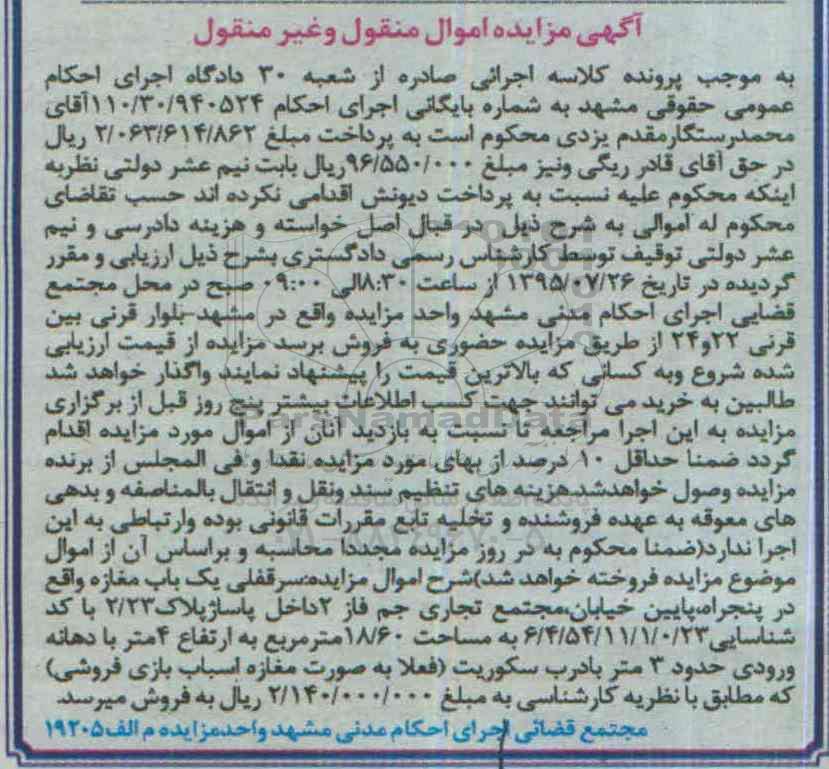 آگهی مزایده اموال منقول وغیر منقول
به موجب پرونده کلاسه اجرائی صادره از شعبه ۳۰ دادگاه اجرای احکام
عمومی حقوقی مشهد به شماره بایگانی اجرای احکام ۱۱۰/۳۰/۹۴۰۵۲۴آقای
محمدرستگارمقدم یزدی محکوم است به پرداخت مبلغ ۲/۰۶۳/۶۱۴/۸۶۲ ریال
در حق آقای قادر ریگی ونیز مبلغ ۹۶/۵۵۰/۰۰۰ریال بابت نیم عشر دولتی نظربه
اینکه محکوم علیه نسبت به پرداخت دیونش اقدامی نکرده اند حسب تقاضای
محکوم له اموالی به شرح ذیل در قبال اصل خواسته و هزینه دادرسی و نیم
عشر دولتی توقیف توسط کارشناس رسمی دادگستری بشرح ذیل ارزیابی و مقرر
گردیده در تاریخ ۱۳۹۵/۰۷/۲۶ از ساعت ۸:۳۰الی ۰۹:۰۰ صبح در محل مجتمع
قضایی اجرای احکام مدنی مشهد واحد مزایده واقع در مشهد-بلوار قرنی بین
قرنی ۲۲و۲۴ از طریق مزایده حضوری به فروش برسد مزایده از قیمت ارزیابی
شده شروع وبه کسانی که بالاترین قیمت را پیشنهاد نمایند واگذار خواهد شد
طالبین به خرید می توانند جهت کسب اطلاعات بیشتر پنج روز قبل از برگزاری
مزایده به این اجرا مراجعه تا نسبت به بازدید آنان از اموال مورد مزایده اقدام
گردد ضمنا حداقل ۱۰ درصد از بهای مورد مزایده نقدا و فی المجلس از برنده
مزایده وصول خواهدشد.هزینه های تنظیم سند ونقل و انتقال بالمناصفه و بدهی
های معوقه به عهده فروشنده و تخلیه تابع مقررات قانونی بوده وارتباطی به این
اجرا ندارد(ضمنا محکوم به در روز مزایده مجددا محاسبه و براساس آن از اموال
موضوع مزایده فروخته خواهد شد)شرح اموال مزایده:سرقفلی یک باب مغازه واقع
در پنجراه،پایین خیابان،مجتمع تجاری جم فاز ۲داخل پاساژپلاک۲/۲۳ با کد
شناسایی۶/۴/۵۴/۱۱/۱/۰/۲۳ به مساحت ۱۸/۶۰مترمربع به ارتفاع ۴متر با دهانه
ورودی حدود ۳ متر بادرب سکوریت (فعلا به صورت مغازه اسباب بازی فروشی)
که مطابق با نظریه کارشناسی به مبلغ ۲/۱۴۰/۰۰۰/۰۰۰ ریال به فروش میرسد.
مجتمع قضائی اجرای احکام مدنی مشهد واحدمزایده م الف۱۹۲۰۵
ParsNamadData